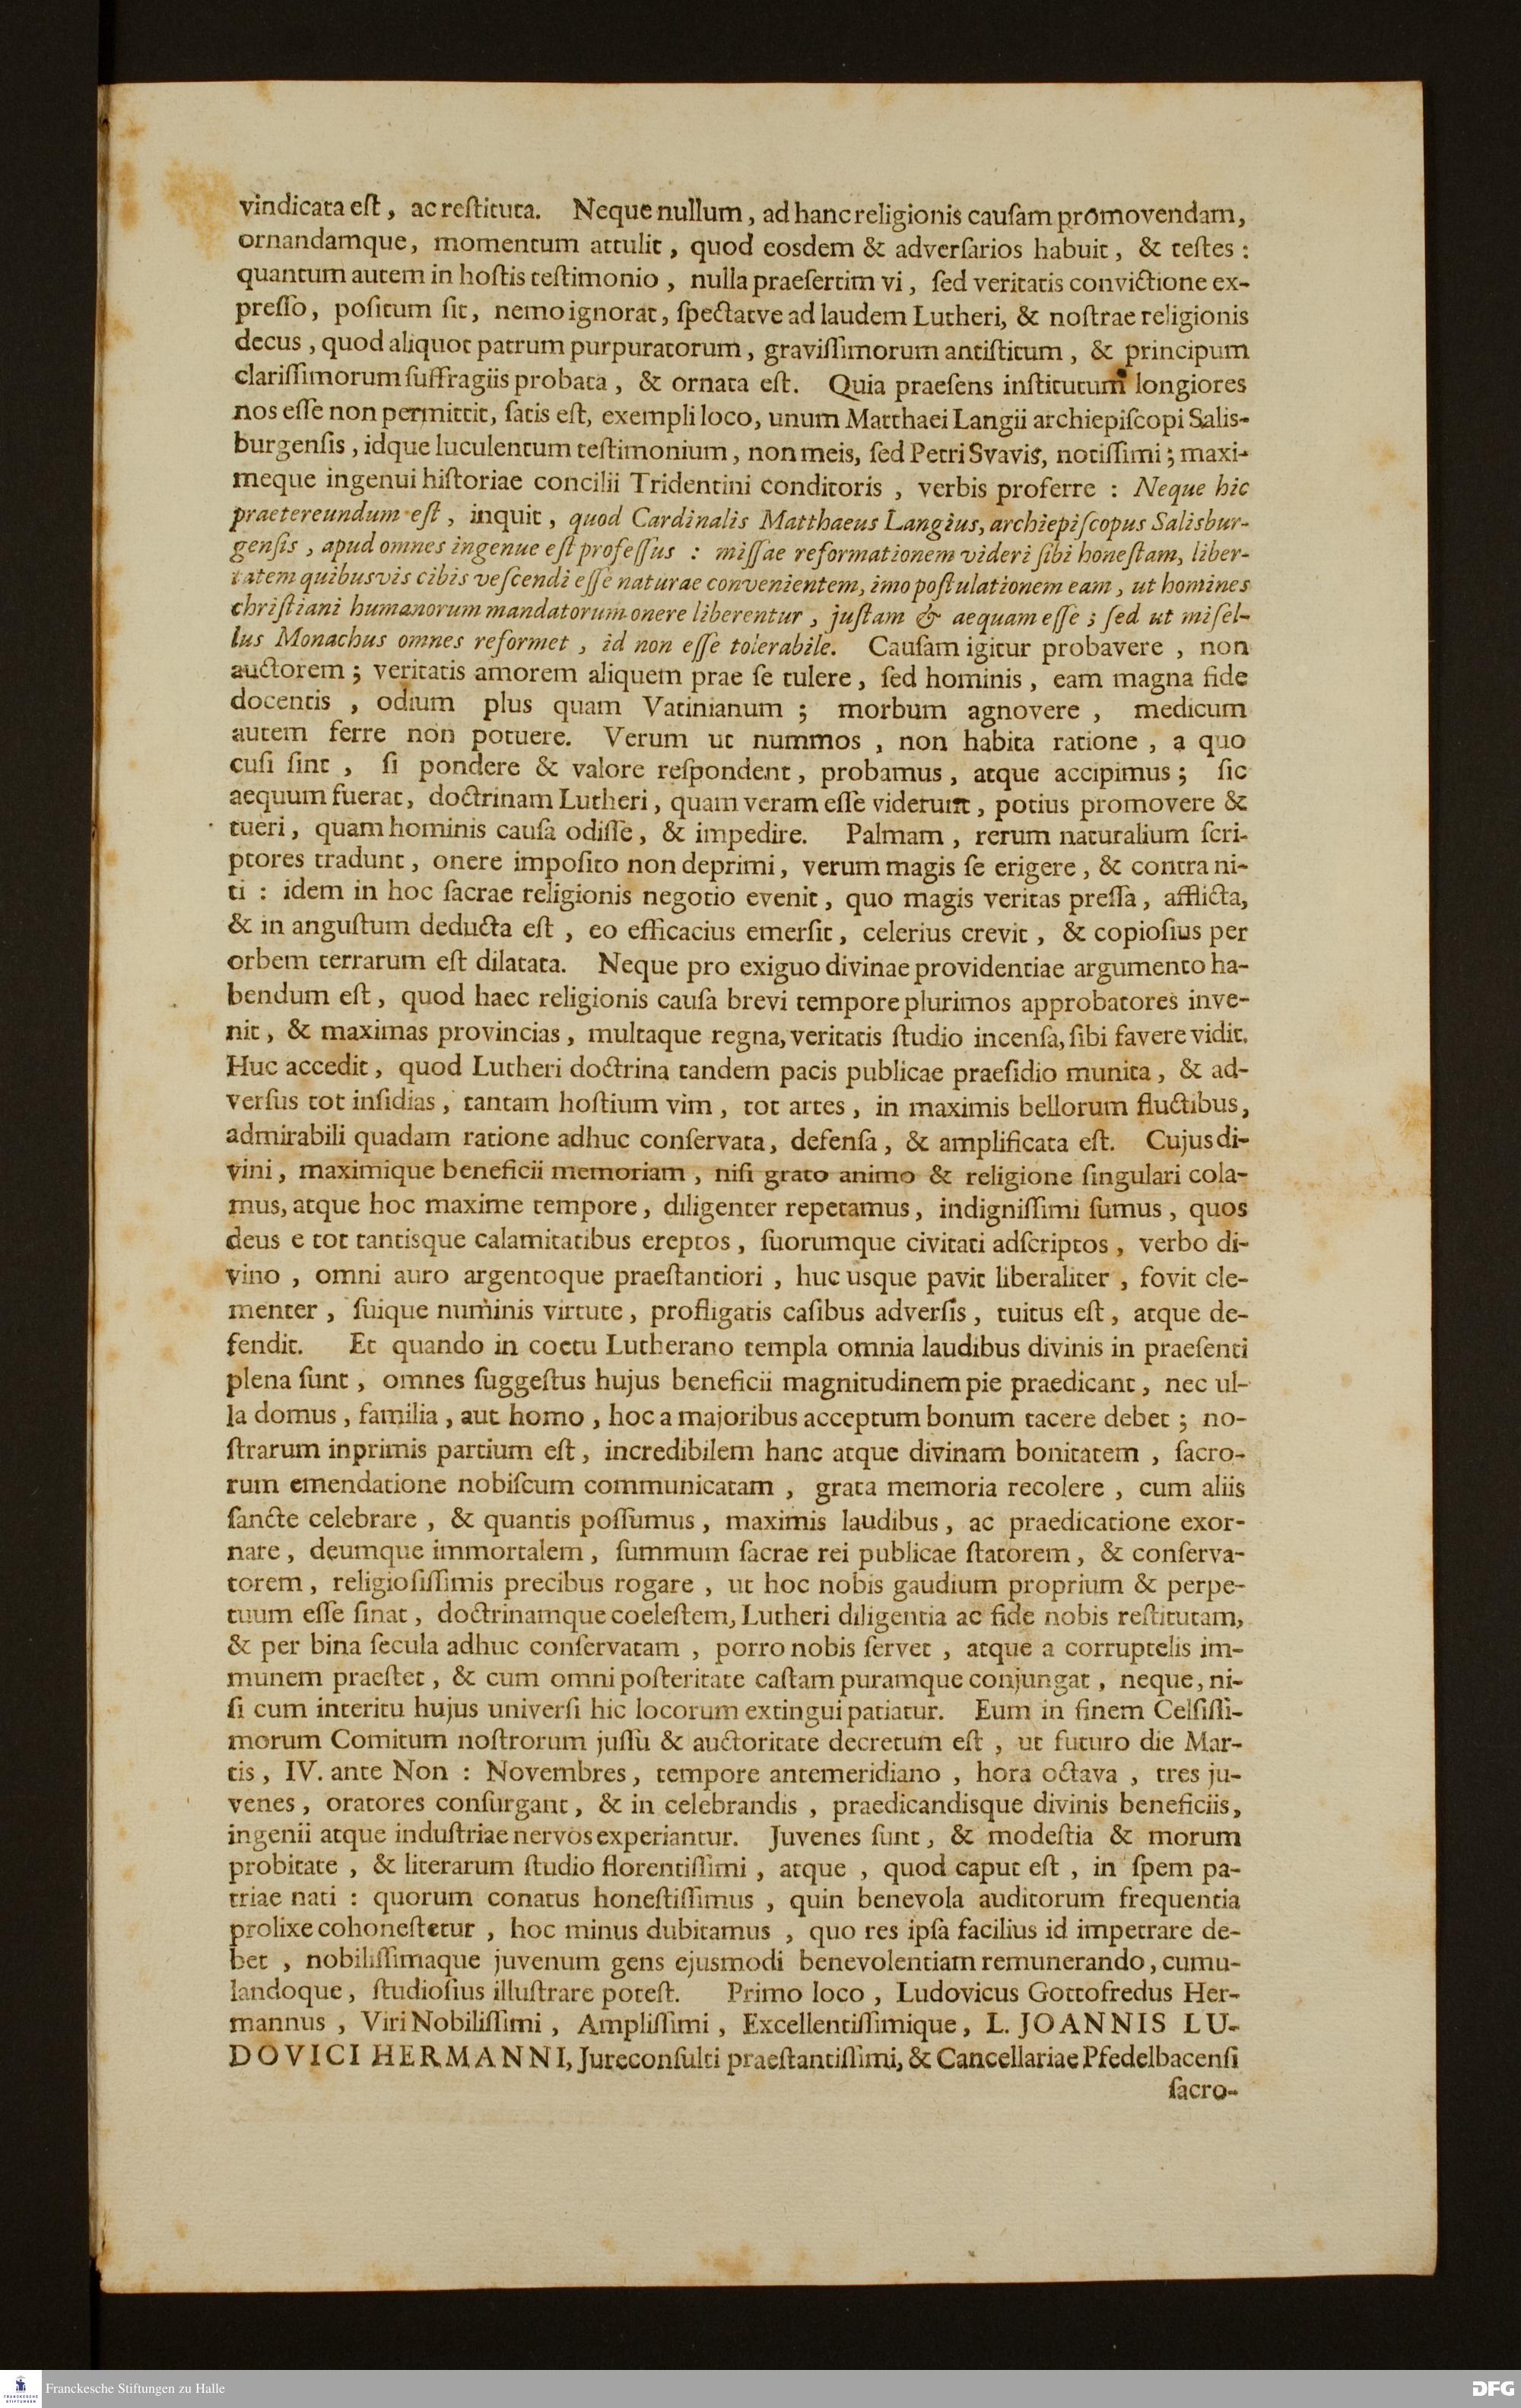 vindicata eſt, ac reſtituta. Neque nullum, ad hanc religionis cauſam promovendam,
ornandamque, momentum attulit, quod eosdem & adverſarios habuit, & teſtes:
quantum autem in hoſtis teſtimonio, nulla praeſertim vi, ſed veritatis convictione ex-
preſſo, poſitum ſit, nemo ignorat, ſpectatve ad laudem Lutheri, & noſtrae religionis
decus, quod aliquot patrum purpuratorum, graviſſimorum antiſtitum, & principum
clariſſimorum ſuffragiis probata, & ornata eſt. Quia praeſens inſtitutum longiores
nos eſſe non permittit, ſatis eſt, exempli loco, unum Matthaei Langii archiepiſcopi Salis-
burgenſis, idque luculentum teſtimonium, non meis, ſed Petri Svavis, notiſſimi; maxi-
meque ingenui hiſtoriae concilii Tridentini conditoris, verbis proferre: Neque hic
praetereundum eſt, inquit, quod Cardinalis Matthaeus Langius, archiepiſcopus Salisbur-
genſis, apud omnes ingenue eſt profeſſus: miſſae reformationem videri ſibi honeſtam, liber-
tatem quibusvis cibis veſcendi eſſe naturae convenientem, imo poſtulationem eam, ut homines
chriſtiani humanorum mandatorum onere liberentur, juſtam & aequam eſſe; ſed ut miſel-
lus Monachus omnes reformet, id non eſſe tolerabile. Cauſam igitur probavere, non
auctorem; veritatis amorem aliquem prae ſe tulere, ſed hominis, eam magna fide
docentis, odium plus quam Vatinianum; morbum agnovere, medicum
autem ferre non potuere. Verum ut nummos, non habita ratione, a quo
cuſi ſint, ſi pondere & valore reſpondent, probamus, atque accipimus; ſic
aequum fuerat, doctrinam Lutheri, quam veram eſſe viderunt, potius promovere &
tueri, quam hominis cauſa odiſſe, & impedire. Palmam, rerum naturalium ſcri-
ptores tradunt, onere impoſito non deprimi, verum magis ſe erigere, & contra ni-
ti: idem in hoc ſacrae religionis negotio evenit, quo magis veritas preſſa, afflicta,
& in anguſtum deducta eſt, eo efficacius emerſit, celerius crevit, & copioſius per
orbem terrarum eſt dilatata. Neque pro exiguo divinae providentiae argumento ha-
bendum eſt, quod haec religionis cauſa brevi tempore plurimos approbatores inve-
nit, & maximas provincias, multaque regna, veritatis ſtudio incenſa, ſibi favere vidit.
Huc accedit, quod Lutheri doctrina tandem pacis publicae praeſidio munita, & ad-
verſus tot inſidias, tantam hoſtium vim, tot artes, in maximis bellorum fluctibus,
admirabili quadam ratione adhuc conſervata, defenſa, & amplificata eſt. Cujus di-
vini, maximique beneficii memoriam, niſi grato animo & religione ſingulari cola-
mus, atque hoc maxime tempore, diligenter repetamus, indigniſſimi ſumus, quos
deus e tot tantisque calamitatibus ereptos, ſuorumque civitati adſcriptos, verbo di-
vino, omni auro argentoque praeſtantiori, huc usque pavit liberaliter, fovit cle-
menter, ſuique numinis virtute, profligatis caſibus adverſis, tuitus eſt, atque de-
fendit. Et quando in coetu Lutherano templa omnia laudibus divinis in praeſenti
plena ſunt, omnes ſuggeſtus hujus beneficii magnitudinem pie praedicant, nec ul-
la domus, familia, aut homo, hoc a majoribus acceptum bonum tacere debet; no-
ſtrarum inprimis partium eſt, incredibilem hanc atque divinam bonitatem, ſacro-
rum emendatione nobiſcum communicatam, grata memoria recolere, cum aliis
ſancte celebrare, & quantis poſſumus, maximis laudibus, ac praedicatione exor-
nare, deumque immortalem, ſummum ſacrae rei publicae ſtatorem, & conſerva-
torem, religioſiſſimis precibus rogare, ut hoc nobis gaudium proprium & perpe-
tuum eſſe ſinat, doctrinamque coeleſtem, Lutheri diligentia ac fide nobis reſtitutam,
& per bina ſecula adhuc conſervatam, porro nobis ſervet, atque a corruptelis im-
munem praeſtet, & cum omni poſteritate caſtam puramque conjungat, neque, ni-
ſi cum interitu hujus univerſi hic locorum extingui patiatur. Eum in finem Celſiſſi-
morum Comitum noſtrorum juſſu & auctoritate decretum eſt, ut futuro die Mar-
tis, IV. ante Non: Novembres, tempore antemeridiano, hora octava, tres ju-
venes, oratores conſurgant, & in celebrandis, praedicandisque divinis beneficiis,
ingenii atque induſtriae nervos experiantur. Juvenes ſunt, & modeſtia & morum
probitate, & literarum ſtudio florentiſſimi, atque, quod caput eſt, in ſpem pa-
triae nati: quorum conatus honeſtiſſimus, quin benevola auditorum frequentia
prolixe cohoneſtetur, hoc minus dubitamus, quo res ipſa facilius id impetrare de-
bet, nobiliſſimaque juvenum gens ejusmodi benevolentiam remunerando, cumu-
landoque, ſtudioſius illuſtrare poteſt. Primo loco, Ludovicus Gottofredus Her-
mannus, Viri Nobiliſſimi, Ampliſſimi, Excellentiſſimique, L. JOANNIS LU-
DOVICI HERMANNI, Jureconſulti praeſtantiſſimi, & Cancellariae Pfedelbacenſi
ſacro-
Franckesche Stiftungen zu Halle
FRANCKESCHE STIFTUNGEN
DFG